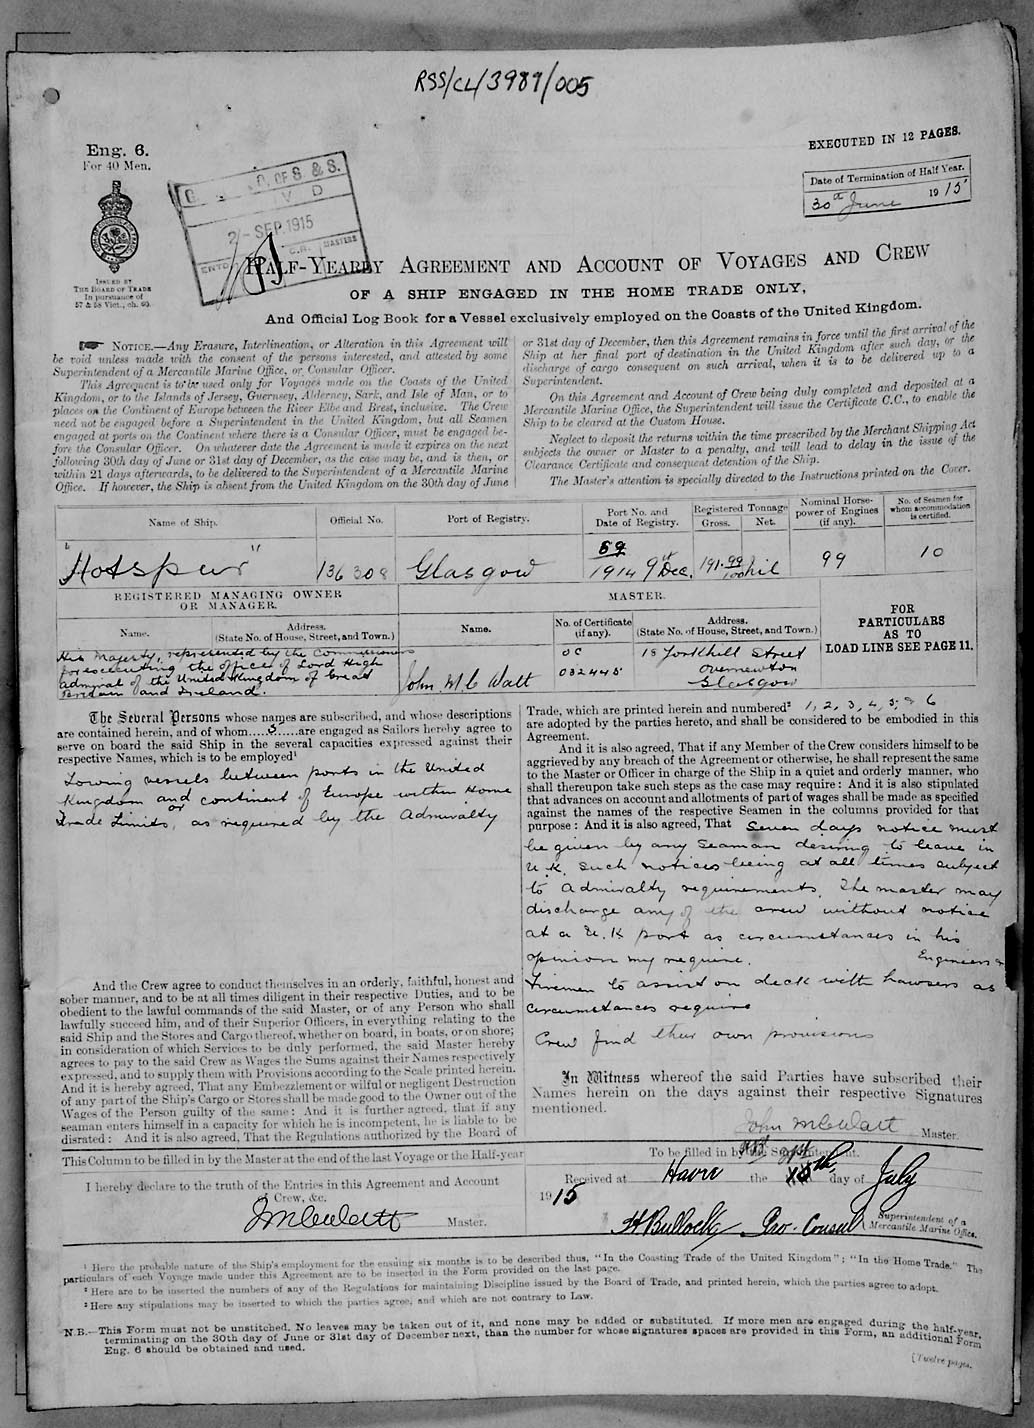 RSS/CL/3989/005
EXECUTED IN 12 PAGES.
Eng. 6.
For 40 Men.
Date of Termination of Half Year.
30th June 1915
OF S & S.
V D
2 - SEP. 1915
C.R.
MASTERS
ENTD
ISSUED BY
THE BOARD OF TRADE
In pursuance of
57 & 58 Vict., ch. 60.
HALF-YEARLY AGREEMENT AND ACCOUNT OF VOYAGES AND CREW
OF A SHIP ENGAGED IN THE HOME TRADE ONLY,
And Official Log Book for a Vessel exclusively employed on the Coasts of the United Kingdom.
NOTICE.—Any Erasure, Interlineation, or Alteration in this Agreement will
be void unless made with the consent of the persons interested, and attested by some
Superintendent of a Mercantile Marine Office, or Consular Officer.
This Agreement is to be used only for Voyages made on the Coasts of the United
Kingdom, or to the Islands of Jersey, Guernsey, Alderney, Sark, and Isle of Man, or to
places on the Continent of Europe between the River Elbe and Brest, inclusive. The Crew
need not be engaged before a Superintendent in the United Kingdom, but all Seamen
engaged at ports on the Continent where there is a Consular Officer, must be engaged be-
fore the Consular Officer. On whatever date the Agreement is made it expires on the next
following 30th day of June or 31st day of December, as the case may be, and is then, or
within 21 days afterwards, to be delivered to the Superintendent of a Mercantile Marine
Office. If however, the Ship is absent from the United Kingdom on the 30th day of June
or 31st day of December, then this Agreement remains in force until the first arrival of the
Ship at her final port of destination in the United Kingdom after such day, or the
discharge of cargo consequent on such arrival, when it is to be delivered up to a
Superintendent.
On this Agreement and Account of Crew being duly completed and deposited at a
Mercantile Marine Office, the Superintendent will issue the Certificate C.C., to enable the
Ship to be cleared at the Custom House.
Neglect to deposit the returns within the time prescribed by the Merchant Shipping Act
subjects the owner or Master to a penalty, and will lead to delay in the issue of the
Clearance Certificate and consequent detention of the Ship.
The Master's attention is specially directed to the Instructions printed on the Cover.
Name of Ship.
Official No.
Port of Registry.
Port No. and
Date of Registry.
Registered Tonnage
Gross. Net.
Nominal Horse-
power of Engines
(if any).
No. of Seamen for
whom accommodation
is certified.
"Hotspur"
136308
Glasgow
59
1914 9th Dec.
191.99/100 nil
99
10
REGISTERED MANAGING OWNER
OR MANAGER.
MASTER.
FOR
PARTICULARS
AS TO
LOAD LINE SEE PAGE 11.
Name.
Address.
(State No. of House, Street, and Town.)
Name.
No. of Certificate
(if any).
Address.
(State No. of House, Street, and Town.)
His Majesty, represented by the Commissioners
for executing the office of Lord High
Admiral of the United Kingdom of Great
Britain and Ireland.
John McC Watt
OC
032445
18 Yorkhill Street
Overnewton
Glasgow
The Several Persons whose names are subscribed, and whose descriptions
are contained herein, and of whom.....3.....are engaged as Sailors hereby agree to
serve on board the said Ship in the several capacities expressed against their
respective Names, which is to be employed¹
Towing vessels between ports in the United
Kingdom and or continent of Europe within Home
Trade Limits, as required by the Admiralty
And the Crew agree to conduct themselves in an orderly, faithful, honest and
sober manner, and to be at all times diligent in their respective Duties, and to be
obedient to the lawful commands of the said Master, or of any Person who shall
lawfully succeed him, and of their Superior Officers, in everything relating to the
said Ship and the Stores and Cargo thereof, whether on board, in boats, or on shore;
in consideration of which Services to be duly performed, the said Master hereby
agrees to pay to the said Crew as Wages the Sums against their Names respectively
expressed, and to supply them with Provisions according to the Scale printed herein.
And it is hereby agreed, That any Embezzlement or wilful or negligent Destruction
of any part of the Ship's Cargo or Stores shall be made good to the Owner out of the
Wages of the Person guilty of the same: And it is further agreed, that if any
seaman enters himself in a capacity for which he is incompetent, he is liable to be
disrated: And it is also agreed, That the Regulations authorized by the Board of
Trade, which are printed herein and numbered² 1, 2, 3, 4, 5, & 6
are adopted by the parties hereto, and shall be considered to be embodied in this
Agreement.
And it is also agreed, That if any Member of the Crew considers himself to be
aggrieved by any breach of the Agreement or otherwise, he shall represent the same
to the Master or Officer in charge of the Ship in a quiet and orderly manner, who
shall thereupon take such steps as the case may require: And it is also stipulated
that advances on account and allotments of part of wages shall be made as specified
against the names of the respective Seamen in the columns provided for that
purpose: And it is also agreed, That seven days notice must
be given by any Seaman desiring to leave in
U.K. Such notices being at all times subject
to Admiralty requirements. The master may
discharge any of the crew without notice
at a U.K port as circumstances in his
opinion my require. Engineers &
Firemen to assist on deck with hawsers as
circumstances require
Crew find their own provisions
In Witness whereof the said Parties have subscribed their
Names herein on the days against their respective Signatures
mentioned.
John McC Watt Master.
This Column to be filled in by the Master at the end of the last Voyage or the Half-year
I hereby declare to the truth of the Entries in this Agreement and Account
of Crew, &c.
J McC Watt Master.
To be filled in by the Superintendent.
Received at Havre the day of July
1915
H Bullock Pro-Consul
Superintendent of a
Mercantile Marine Office.
¹ Here the probable nature of the Ship's employment for the ensuing six months is to be described thus, "In the Coasting Trade of the United Kingdom"; "In the Home Trade." The
particulars of each Voyage made under this Agreement are to be inserted in the Form provided on the last page.
² Here are to be inserted the numbers of any of the Regulations for maintaining Discipline issued by the Board of Trade, and printed herein, which the parties agree to adopt.
³ Here any stipulations may be inserted to which the parties agree, and which are not contrary to Law.
N.B.—This Form must not be unstitched. No leaves may be taken out of it, and none may be added or substituted. If more men are engaged during the half-year,
terminating on the 30th day of June or 31st day of December next, than the number for whose signatures spaces are provided in this Form, an additional Form
Eng. 6 should be obtained and used.
(Twelve pages.